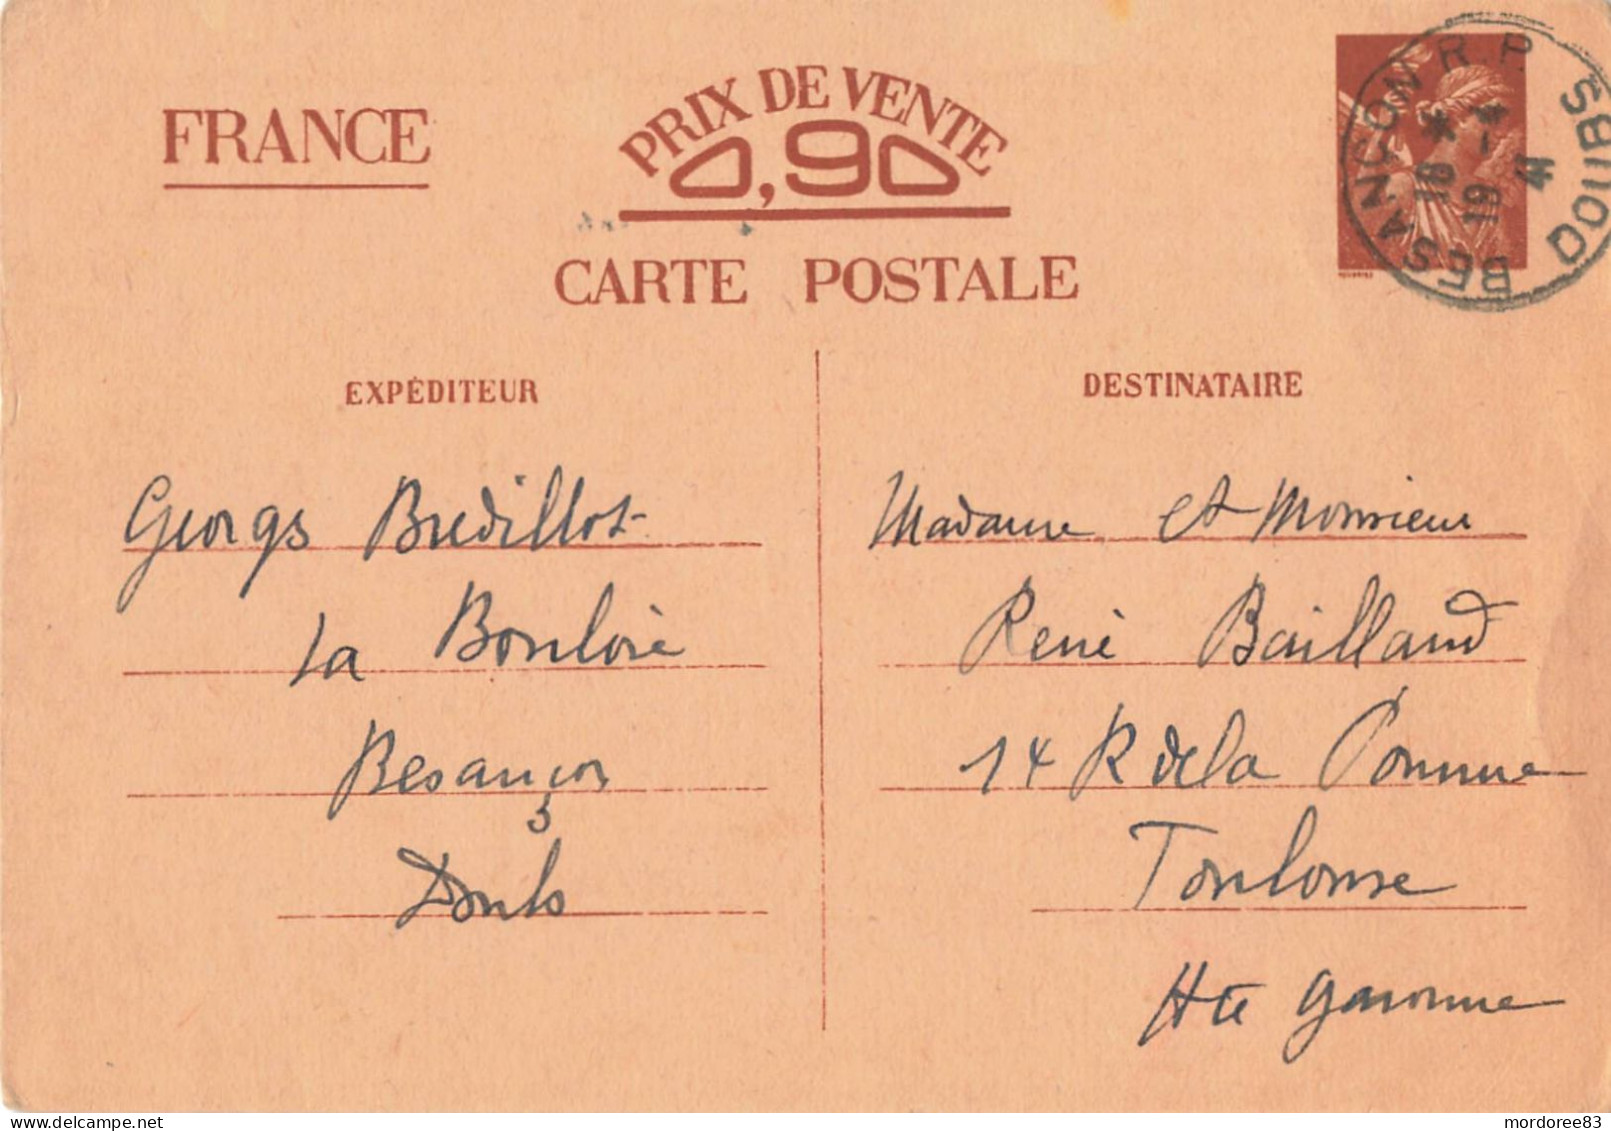 FRANCE
PRIX DE VENTE
0,90
CARTE POSTALE
BESANÇON R.P. DOUBS
18 *
19 - 4
41
EXPÉDITEUR
Georges Bredillot
La Bouloie
Besançon
Doubs
DESTINATAIRE
Madame et Monsieur
René Baillaud
14 R de la Pomme
Toulouse
Hte Garonne
mordoree83